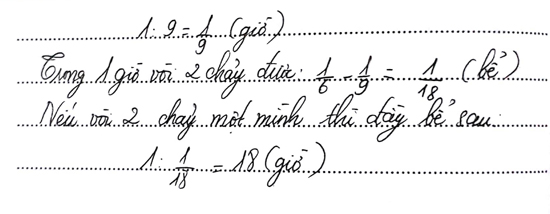 1 : 9 = 1/9 (giờ)
Trong 1 giờ vòi 2 chảy được: 1/6 - 1/9 = 1/18 (bể)
Nếu vòi 2 chảy một mình thì đầy bể sau:
1 : 1/18 = 18 (giờ)